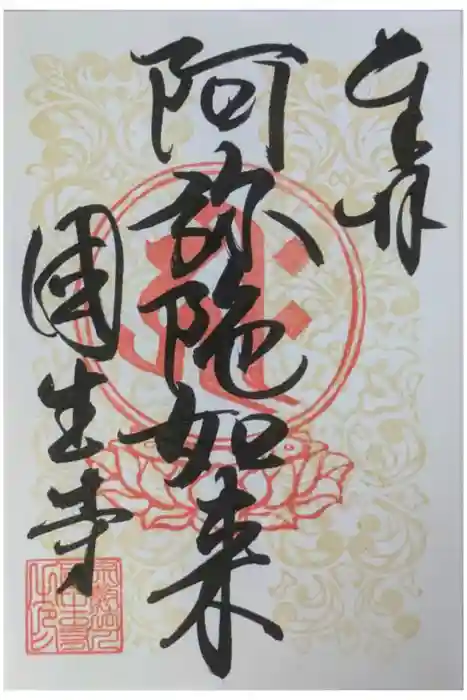 奉拝
阿弥陀如来
圓生寺